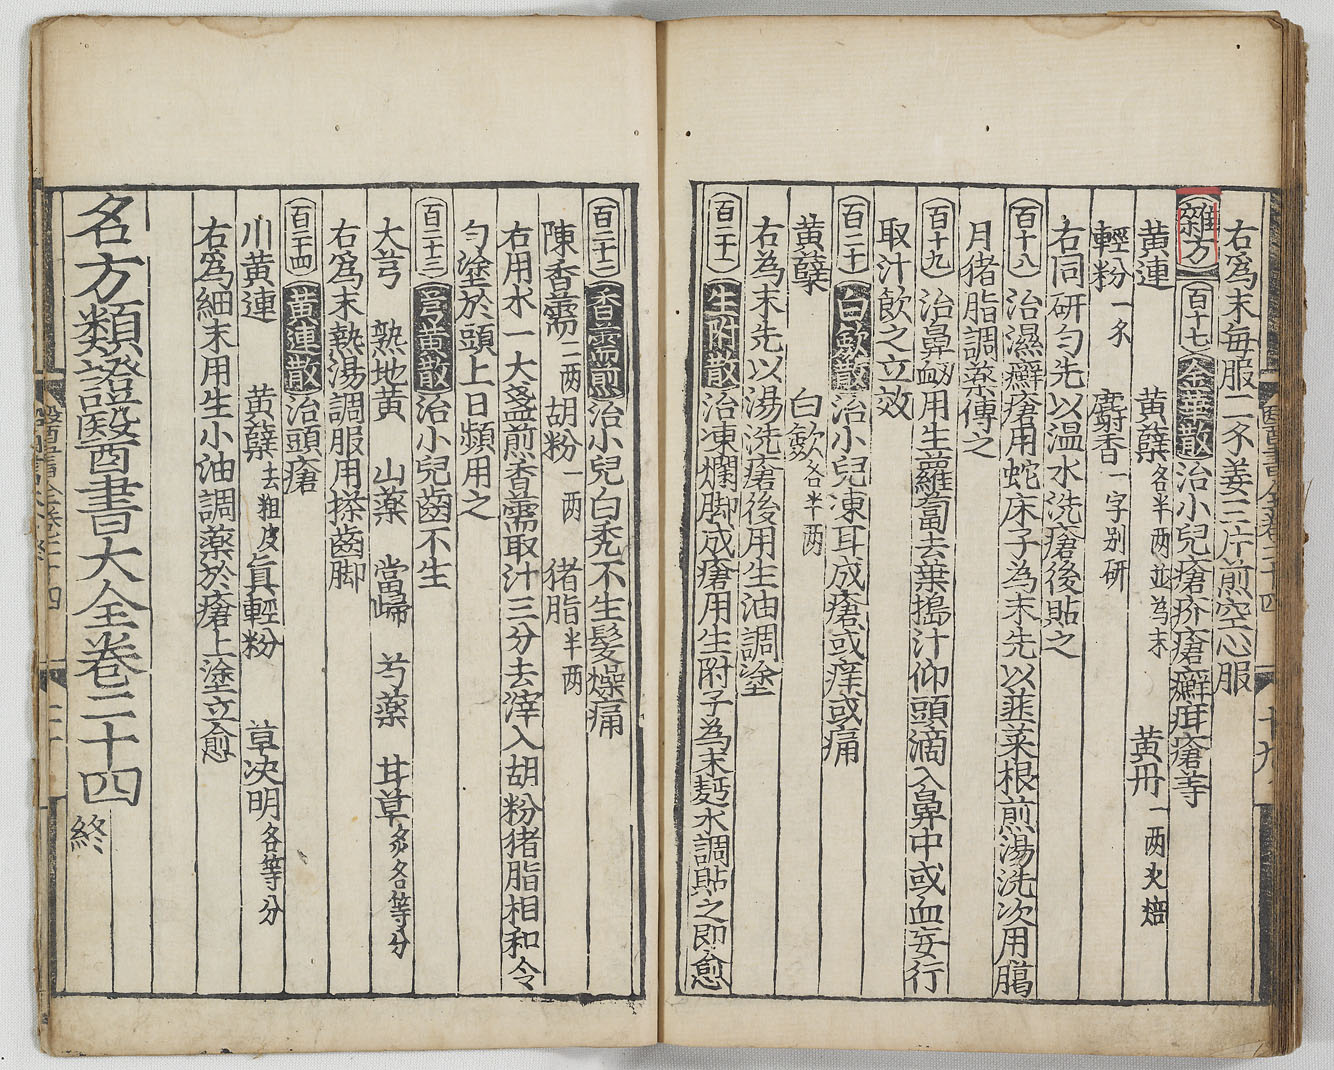 右爲末每服二戔姜三片煎空心服
雜方 百十七 金華散 治小兒瘡疥瘡癬疳瘡等
黃連 黃蘗各半两並為末 黃丹一两火焙
輕粉一戔 麝香一字别研
右同研勻先以温水洗瘡後貼之
百十八 治濕癬瘡用蛇床子為末先以韮菜根煎湯洗次用臈
月猪脂調藥傅之
百十九 治鼻衂用生蘿蔔去葉搗汁仰頭滴入鼻中或血妄行
取汁飲之立效
百二十 白歛散 治小兒凍耳成瘡或痒或痛
黃蘗 白歛各半两
右為末先以湯洗瘡後用生油調塗
百二十一 生附散 治凍爛脚成瘡用生附子為末麪水調貼之即愈
百二十二 香薷煎 治小兒白秃不生髮燥痛
陳香薷二两 胡粉一两 猪脂半两
右用水一大盞煎香薷取汁三分去滓入胡粉猪脂相和令
勻塗於頭上日頻用之
百二十三 芎黃散 治小兒齒不生
大芎 熟地黃 山藥 當歸 芍藥 甘草炙各等分
右爲末熟湯調服用搽齒脚
百二十四 黃連散 治頭瘡
川黃連 黃蘗去粗皮 眞輕粉 草决明各等分
右爲細末用生小油調藥於瘡上塗立愈
名方類證醫書大全卷二十四
終